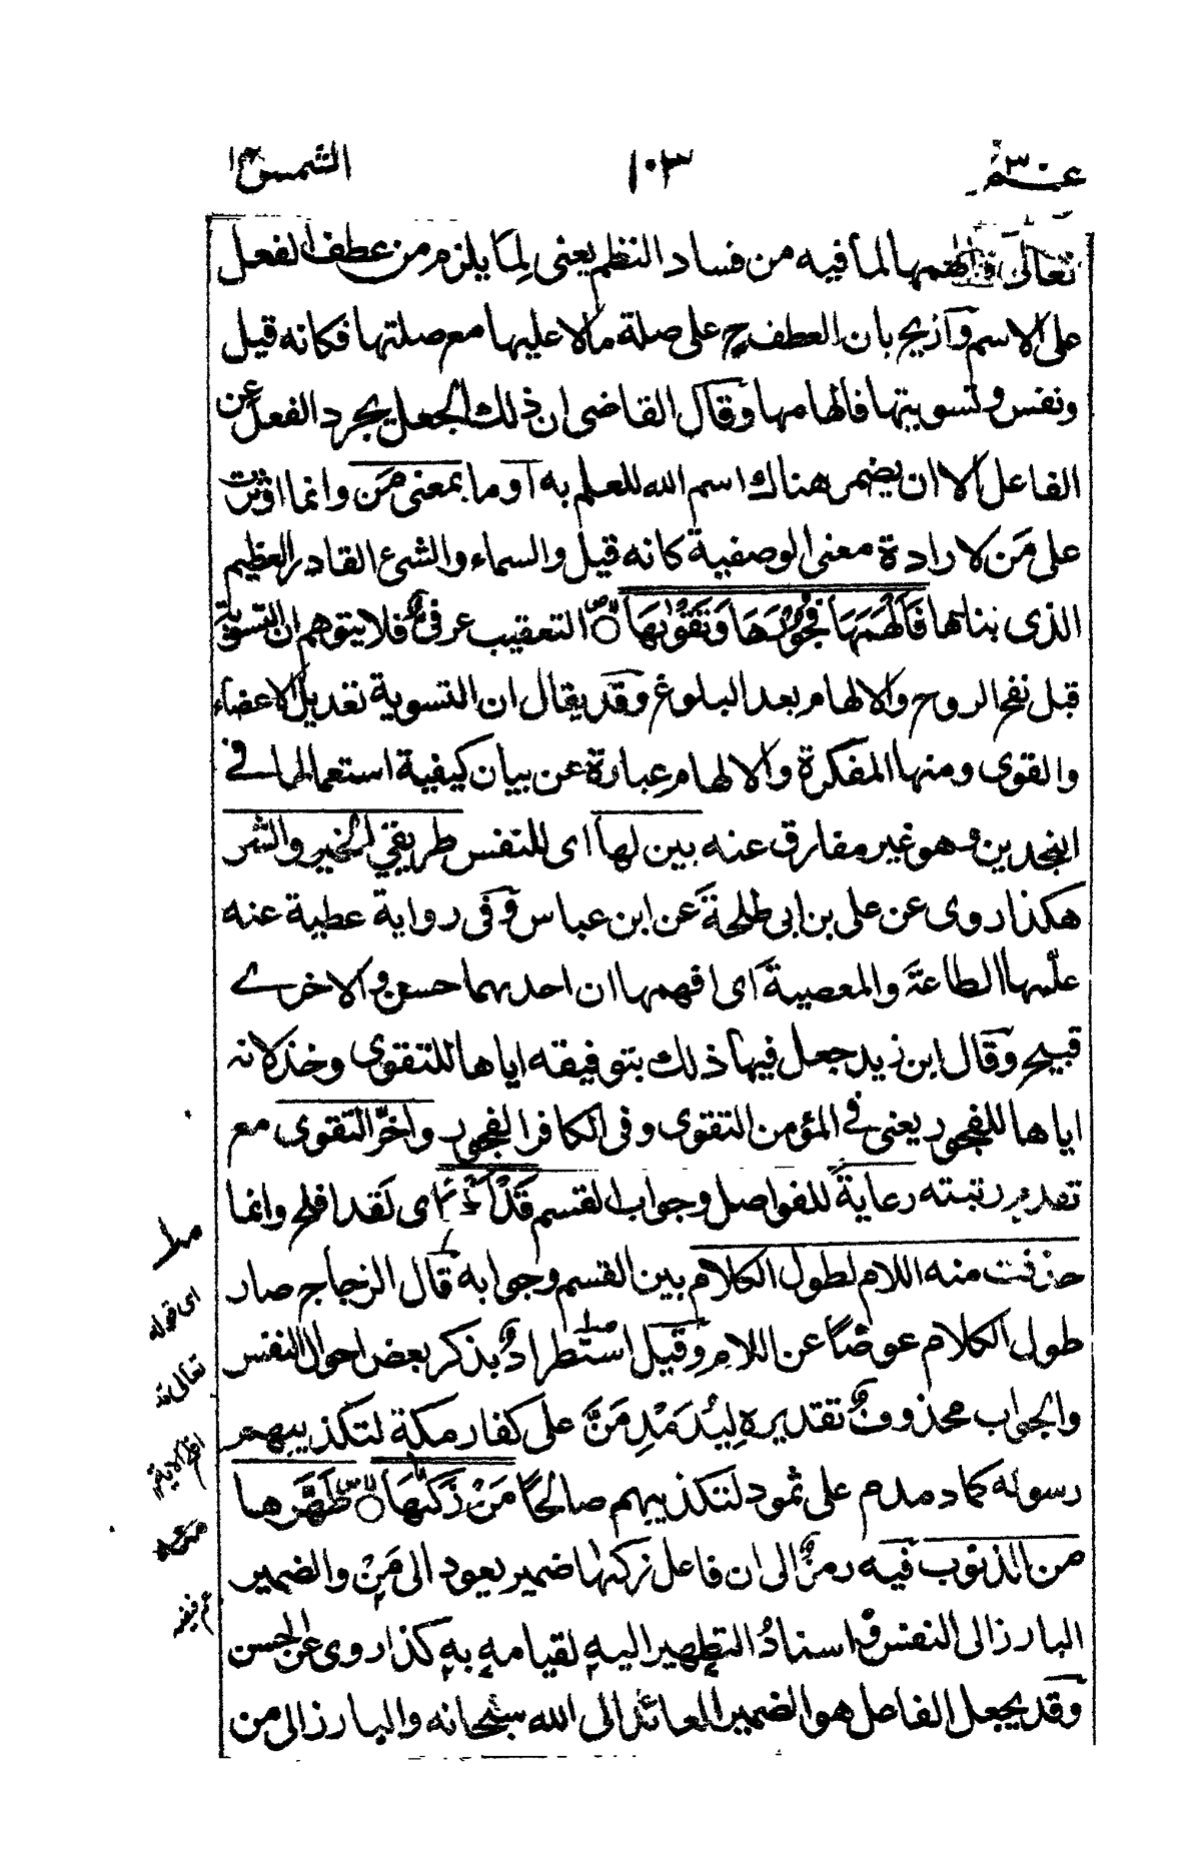 عم ٣٠
١٠٣
الشمس ٩١
تعالى فالهمها لما فيه من فساد النظم يعنى لِمَا يلزم من عطف الفعل
على الاسم وآزيح بان العطف ح على صلة ما لا عليها مع صلتها فكانه قيل
ونفس وتسويتها فالهامها وقال القاضى ان ذلك الجعل يجرد الفعل عن
الفاعل الا ان يضمر هناك اسم الله للعلم به آو ما بمعنى مَن وانما اوثرت
على مَن لارادة معنى الوصفية كانه قيل والسماء والشئ القادر العظيم
الذى بناها فَاَلْهَمَهَا فُجُوْرَهَا وَتَقْوٰىهَا ۝ التعقيب عرفىٌّ فلا يتوهم ان التسوية
قبل نفخ الروح والالهام بعد البلوغ وقد يقال ان التسوية تعديل الاعضاء
والقوى ومنها المفكرة والالهام عبارة عن بيان كيفية استعمالها فى
النجدين وهو غير مفارق عنه بين لها اى للنفس طريقي الخير والشر
هكذا روى عن على بن ابى طلحةَ عن ابن عباس وفى رواية عطية عنه
علّمها الطاعةَ والمعصيةَ اى افهمها ان احدهما حسن والاخرے
قبيح وقال ابن زيد جعل فيها ذلك بتوفيقه اياها للتقوى وخذلانه
اياها للفجور يعنى فى المؤمن التقوى وفى الكافر الفجور واخّر التقوى مع
تقدم رتبته رعايةً للفواصل وجواب القسم قَدْ اى لَقد افلح وانما
حذفت منه اللام لطول الكلام بين القسم وجوابه قال الزجاج صار
طول الكلام عوضًا عن اللام وقيل استطرادٌ بذكر بعض احوال النفس
والجواب محذوفٌ تقديره لِيُدَمْدِمَنَّ على كفار مكة لتكذيبهم
رسوله كما دمدم على ثمود لتكذيبهم صالحًا مَنْ زَكّٰىهَا ۝ طَهَّرها
من الذنوب فيه رمزٌ الى ان فاعل زكها ضمير يعود الى مَنْ والضمير
البارز الى النفس و اسنادُ التطهير اليه لقيامه به كذا روى عن الحسن
وقد يجعل الفاعل هو الضمير العائد الى الله سبحانه والبارز الى من
اى قوله
تعالى قد
افلح الاية ١٢